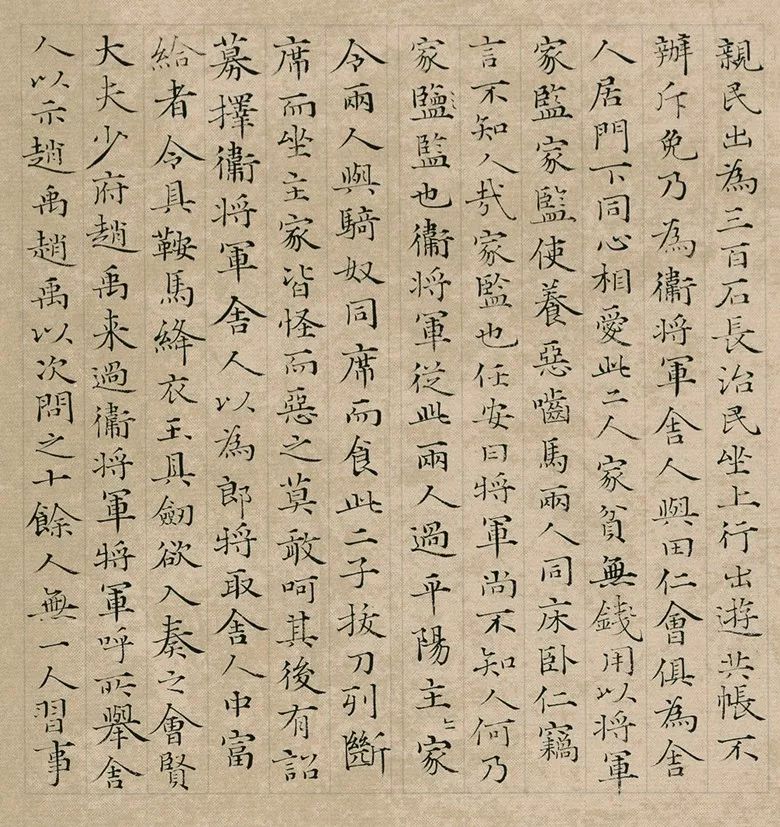 親民出為三百石長治民坐上行出遊共帳不
辦斥免乃為衞將軍舍人與田仁會俱為舍
人居門下同心相愛此二人家貧無錢用以將軍
家監家監使養惡嚙馬兩人同床卧仁竊
言不知人哉家監也任安曰將軍尚不知人何乃
家鹽監也衞將軍從此兩人過平陽主〻家
令兩人與騎奴同席而食此二子拔刀列斷
席而坐主家皆怪而惡之莫敢呵其後有詔
募擇衞將軍舍人以為郎將取舍人中富
給者令具鞍馬絳衣玉具劒欲入奏之會賢
大夫少府趙禹来過衞將軍將軍呼所舉舍
人以示趙禹趙禹以次問之十餘人無一人習事